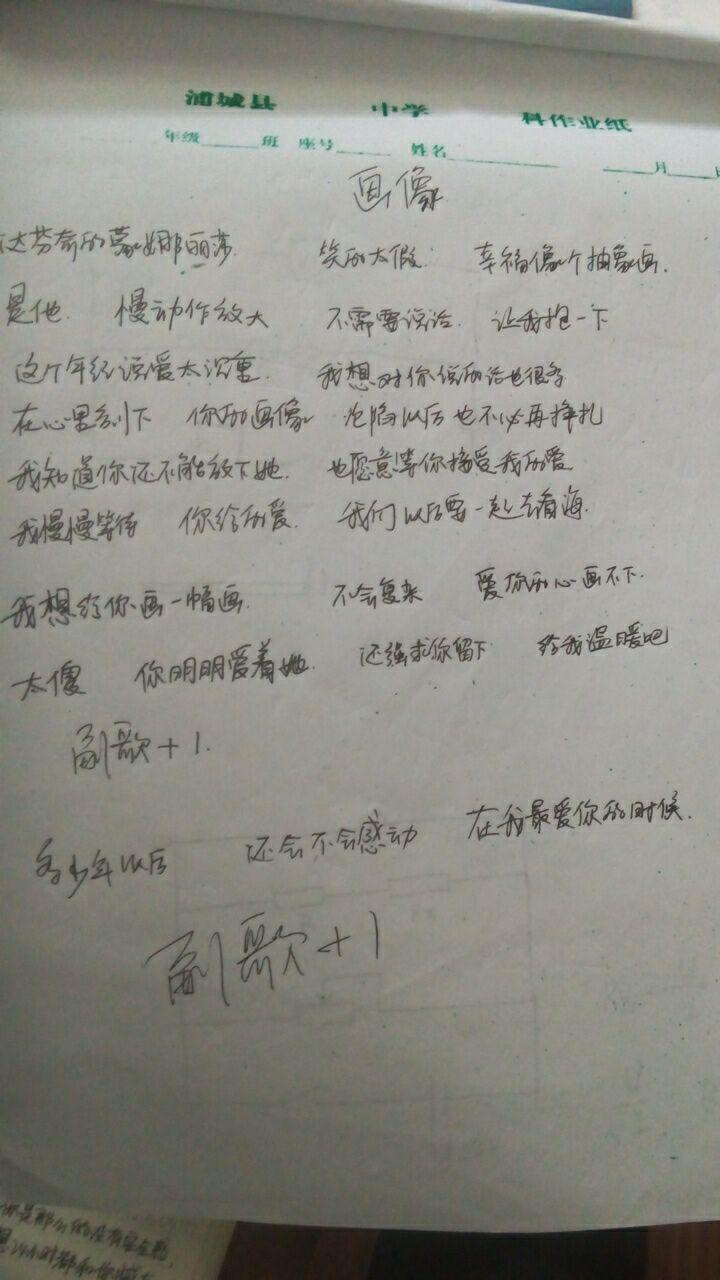 浦城县 中学 科作业纸
年级 班 座号 姓名 月
画像
达芬奇的蒙娜丽莎 笑的太假 幸福像个抽象画.
是他. 慢动作放大 不需要说话. 让我抱一下
这个年纪说爱太沉重. 我想对你说的话也很多
在心里刻下 你的画像 沦陷以后也不必再挣扎
我知道你还不能放下她. 也愿意等你接受我的爱
我慢慢等待 你给的爱. 我们以后要一起去看海.
我想给你画一幅画. 不会复杂 爱你的心画不下.
太傻 你明明爱着她. 还强求你留下 给我温暖吧
副歌+1.
多少年以后 还会不会感动 在我最爱你的时候.
副歌+1